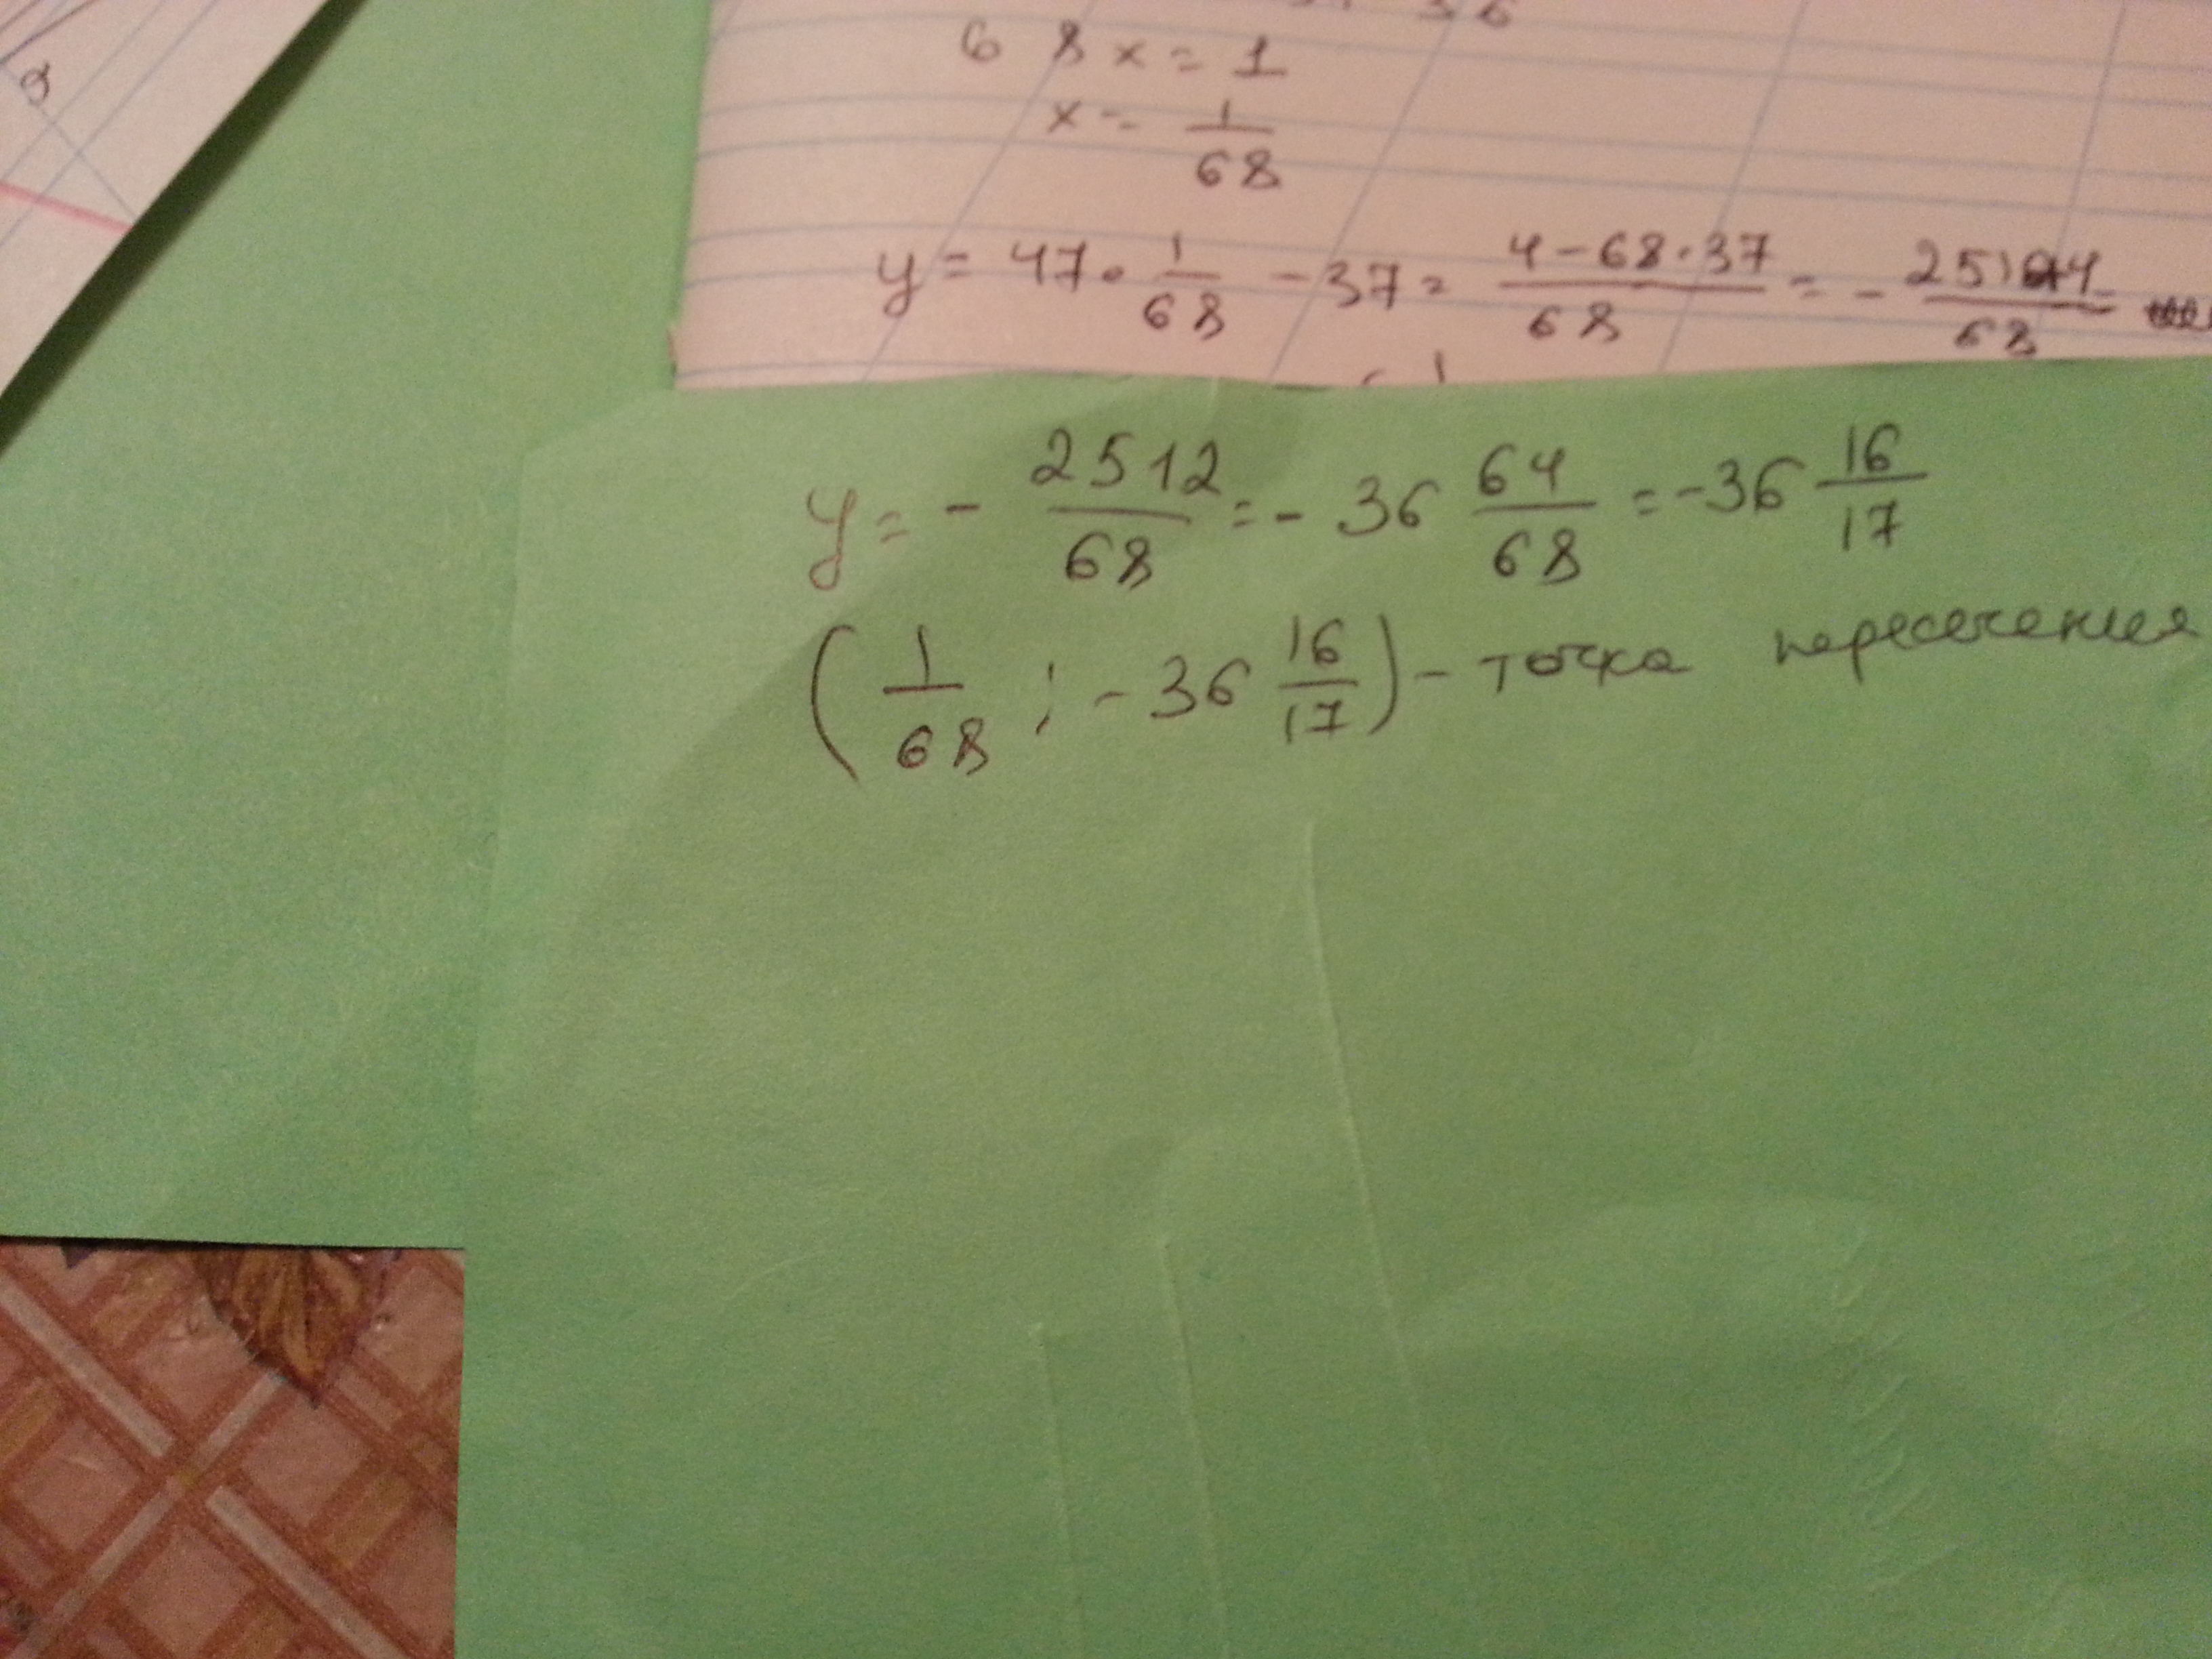 68x = 1
x = 1/68
y = 47 · 1/68 - 37 = (4 - 68 · 37)/68 = -
y = - 2512/68 = - 36 64/68 = - 36 16/17
(1/68 ; - 36 16/17) - точка пересечения